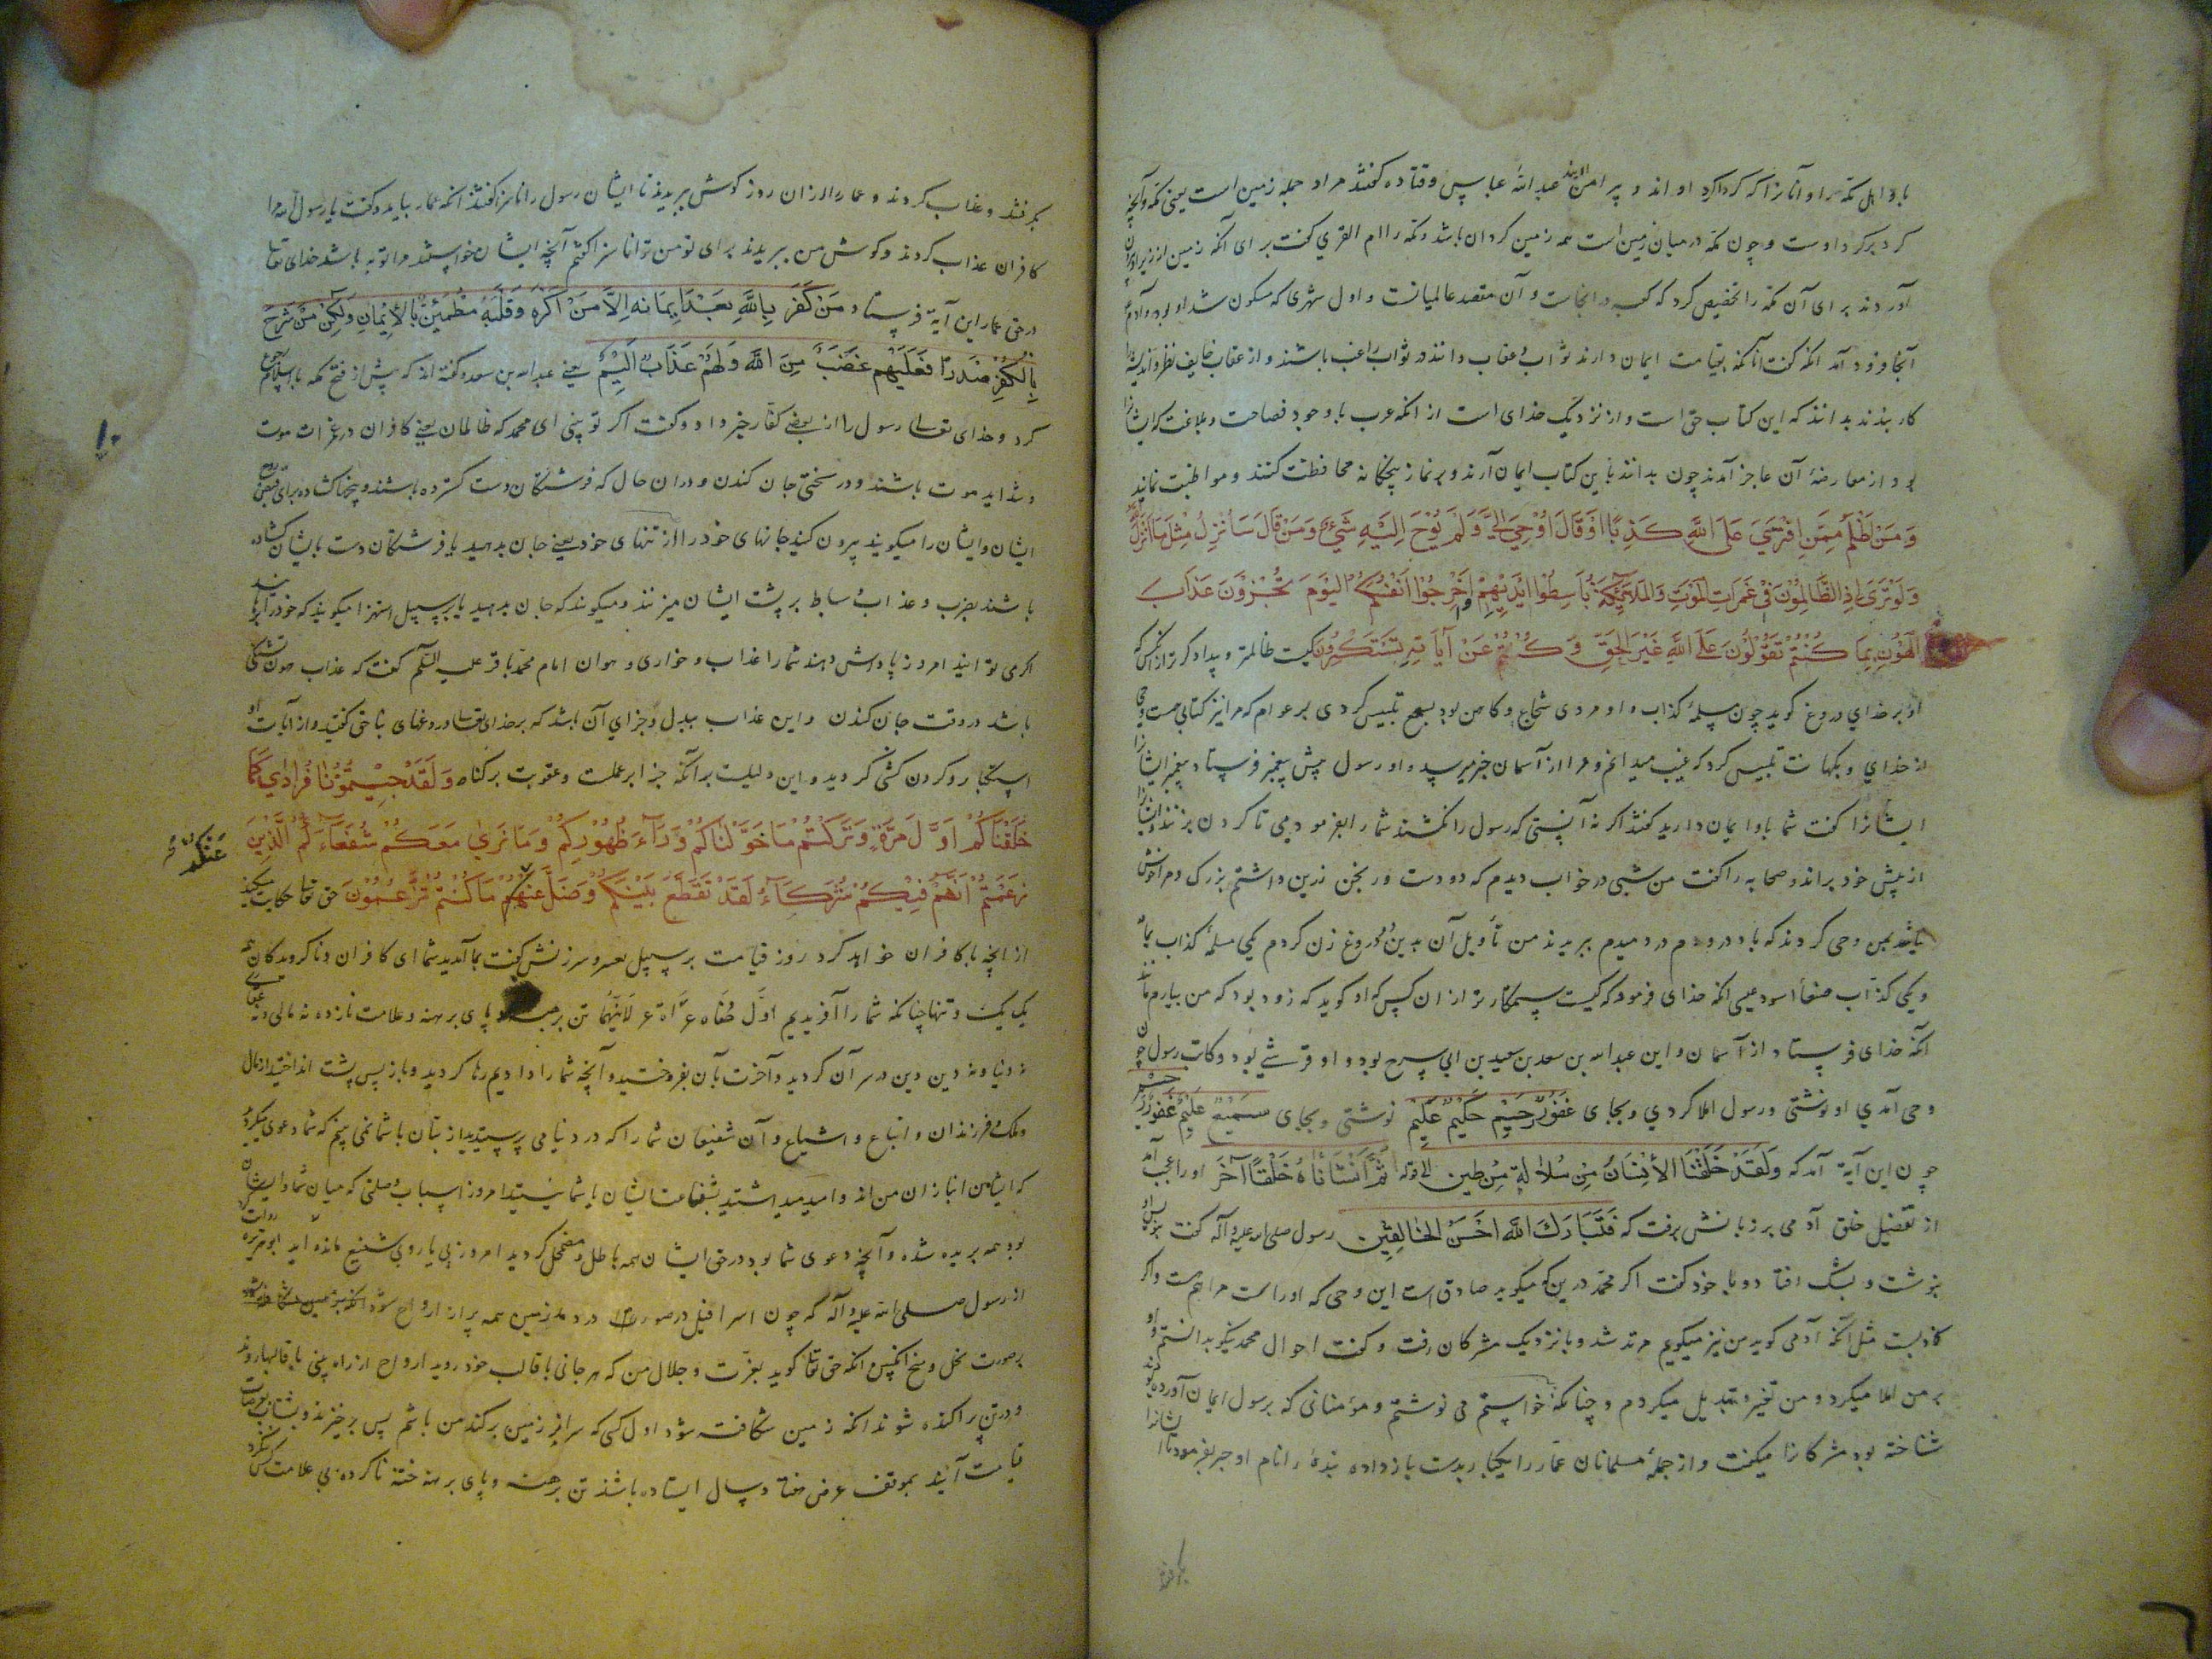 با تو اهل مکه را و آنانرا که کرداکرد او اند و پیرامن عبد الله عباس و قتاده کفتند مراد جمله زمین است یعنی مکه و آنچه
کرد برکرد اوست و چون مکه در میان زمین است همه زمین کرد آن باشد و مکه را ام القری کفت برای آنکه زمین از زیر او
آوردند برای آن مکه را تخصیص کرد که کعبه در انجاست و آن مقصد عالمیانست و اول شهری که مسکون شد او بود و آدم
آنجا فرود آمد انکه کفت آنانکه بقیامت ایمان دارند ثواب و عقاب دانند در ثواب راغب باشند و از عقاب خایف
کار بندند بدانند که این کتاب حق است و از نزدیک خدای است از انکه عرب با وجود فصاحت و بلاغت که ایشانرا
بود از معارضهٔ آن عاجز آمدند چون بدانند باین کتاب ایمان آرند و بر نماز پنجکانه محافظت کنند و مواظبت نمایند
وَمَنْ اَظْلَمُ مِمَّنِ افْتَرَى عَلَى اللَّهِ كَذِبًا اَوْ قَالَ اُوْحِيَ اِلَيَّ وَلَمْ يُوْحَ اِلَيْهِ شَيْءٌ وَمَنْ قَالَ سَاُنْزِلُ مِثْلَ مَا اَنْزَلَ اللَّهُ
وَلَوْ تَرَى اِذِ الظَّالِمُوْنَ فِيْ غَمَرَاتِ الْمَوْتِ وَالْمَلَائِكَةُ بَاسِطُوْا اَيْدِيْهِمْ اَخْرِجُوْا اَنْفُسَكُمُ الْيَوْمَ تُجْزَوْنَ عَذَابَ
الْهُوْنِ بِمَا كُنْتُمْ تَقُوْلُوْنَ عَلَى اللَّهِ غَيْرَ الْحَقِّ وَكُنْتُمْ عَنْ آيَاتِهِ تَسْتَكْبِرُوْنَ کیست ظالمتر و بیدادکرتر از آنکس که
او بر خدای دروغ کوید چون مسیلمهٔ کذاب و او مردی شجاع و کاهن بود بسجع تلبیس کردی بر عوام که مرا نیز کتابی هست و وحی
از خدای و بکهانت تلبیس کرد که غیب میدانم و مرا از آسمان خبر میرسد و او رسول پیش پیغمبر فرستاد پیغمبر ایشانرا
ایشانرا کفت شما باو ایمان دارید کفتند اکر نه آنستی که رسول را نکشند شما را بفرمودمی تا کردن بزنند
از پیش خود براند و صحابه را کفت من شبی در خواب دیدم که دو دست ورنجن زرین داشتم بزرک
بمن وحی کردند که باد در دم در دمیدم ببریدند من تأویل آن بدین دو دروغ زن کردم یکی مسیلمهٔ کذاب
و یکی کذاب صنعا اسود عیسی انکه خدای فرمود که کیست ستمکارتر از ان کس که او کوید که زود بود که من بیارم مانند
آنکه خدای فرستاد از آسمان و این عبد الله بن سعد بن سعید بن ابی سرح بود و او قرشی بود و کاتب رسول چون
وحی آمدی او نوشتی و رسول املا کردی و بجای غَفُوْرٌ رَحِيْمٌ حَكِيْمٌ عَلِيْمٌ نوشتی و بجای سَمِيْعٌ عَلِيْمٌ غَفُوْرٌ رَحِيْمٌ
چون این آیة آمد که وَلَقَدْ خَلَقْنَا الْاِنْسَانَ مِنْ سُلَالَةٍ مِنْ طِيْنٍ الی قوله ثُمَّ اَنْشَأْنَاهُ خَلْقًا آخَرَ او را عجب آمد
از تفضیل خلق آدمی بر زبانش برفت که فَتَبَارَكَ اللَّهُ اَحْسَنُ الْخَالِقِيْنَ رسول صلی الله علیه و آله کفت بنویس
بنوشت و بشک افتاد و با خود کفت اکر محمد درین که میکوید صادق است این وحی که او راست مرا هم هست و اکر
کاذبست مثل انکه آدمی کوید من نیز میکویم مرتد شد و با نزدیک مشرکان رفت و کفت احوال محمد نیکو بدانستم و او
بر من املا میکرد و من تغییر و تبدیل میکردم و چنانکه خواستم می نوشتم و مؤمنانی که برسول ایمان آورده بودند
شناخته بود مشرکانرا میکفت و از جملهٔ مسلمانان عمّار را
بکرفتند و عذاب کردند و عمار را دران روز کوش ببریدند تا ایشان رسول را ناسزا کفتند انکه عمار بیامد و کفت یا رسول الله مرا
کافران عذاب کردند و کوش من ببریدند برای تو من ترا ناسزا کفتم آنچه ایشان خواستند مرا توبه باشد خدای تعالی
در حق عمار این آیة فرستاد مَنْ كَفَرَ بِاللَّهِ بَعْدَ اِيْمَانِهِ اِلَّا مَنْ اُكْرِهَ وَقَلْبُهُ مُطْمَئِنٌّ بِالْاِيْمَانِ وَلَكِنْ مَنْ شَرَحَ
بِالْكُفْرِ صَدْرًا فَعَلَيْهِمْ غَضَبٌ مِنَ اللَّهِ وَلَهُمْ عَذَابٌ اَلِيْمٌ یعنی عبدالله بن سعد و کفته اند که پیش از فتح مکه با اسلام رجوع
کرد و خدای تعالی رسول را از بعضی کفار خبر داد و کفت اکر تو بینی ای محمد که ظالمان یعنی کافران در غمرات موت
و شداید موت باشند و در سختی جان کندن و دران حال که فرشتکان دست کسترده باشند و پنجها کشاده برای قبض روح
ایشان و ایشان را میکویند بیرون کنید جانهای خود را از تنهای خود یعنی جان بدهید یا فرشتکان دست بایشان کشاده
باشند بضرب و عذاب و سیاط بر پشت ایشان میزنند و میکویند که جان بدهید یا بر سبیل استهزا میکویند که خود را برهانید
اکر می توانید امروز پاداش دهند شما را عذاب و خواری و هوان امام محمد باقر علیه السلم کفت که عذاب هون تشنکی
باشد در وقت جان کندن و این عذاب ببدل و جزای آن باشد که بر خدای تعالی دروغهای ناحق کفتید و از آیات او
استکبار و کردن کشی کردید و این دلیلست بر آنکه جزا بر عملست و عقوبت بر کناه وَلَقَدْ جِئْتُمُوْنَا فُرَادَى كَمَا
خَلَقْنَاكُمْ اَوَّلَ مَرَّةٍ وَتَرَكْتُمْ مَا خَوَّلْنَاكُمْ وَرَاءَ ظُهُوْرِكُمْ وَمَا نَرَى مَعَكُمْ شُفَعَاءَكُمُ الَّذِيْنَ
زَعَمْتُمْ اَنَّهُمْ فِيْكُمْ شُرَكَاءُ لَقَدْ تَقَطَّعَ بَيْنَكُمْ وَضَلَّ عَنْهُمْ مَا كُنْتُمْ تَزْعُمُوْنَ حق تعالی حکایت میکند
عَنْكُمْ
از انچه با کافران خواهد کرد روز قیامت بر سبیل و سرزنش کفت بما آمدید شما ای کافران و ناکرویدکان
یک یک و تنها چنانکه شما را آفریدیم اول تن برهنه پای برهنه و علامت نازده نه مالی
نه دنیا و نه دین دین در سر آن کردید و آخرت بآن بفروختید و آنچه شما را دادیم رها کردید و باز پس پشت انداختید از مال
و ملک و فرزندان و اتباع و اشیاع و آن شفیعان شما را که در دنیا می پرستیدید از بتان با شما نمی بینم که شما دعوی میکردید
که ایشان انبازان من اند و امید میداشتید بشفاعت ایشان با شما نیستند امروز اسباب وصلتی که میان شما و ایشان
بود همه بریده شده و آنچه دعوی شما بود در حق ایشان همه باطل و مضمحل کردید امروز بی یار و بی شفیع مانده اید ابو هریره روایت کرد
از رسول صلی الله علیه و آله که چون اسرافیل در صور دردمد زمین همه پر از ارواح شود
بر صورت نحل و مخ انکبین انکه حق تعالی کوید بعزت و جلال من که هر جانی با قالب خود روید ارواح از راه بینی با قالبها روند
و در تن پراکنده شوند انکه زمین شکافته شود اول کسی که سر از زمین برکند من باشم پس برخیزند و بشتاب بعرصات
قیامت آیند بموقف عرض هفتاد سال ایستاده باشند تن برهنه و پای برهنه ختنه ناکرده بی علامت